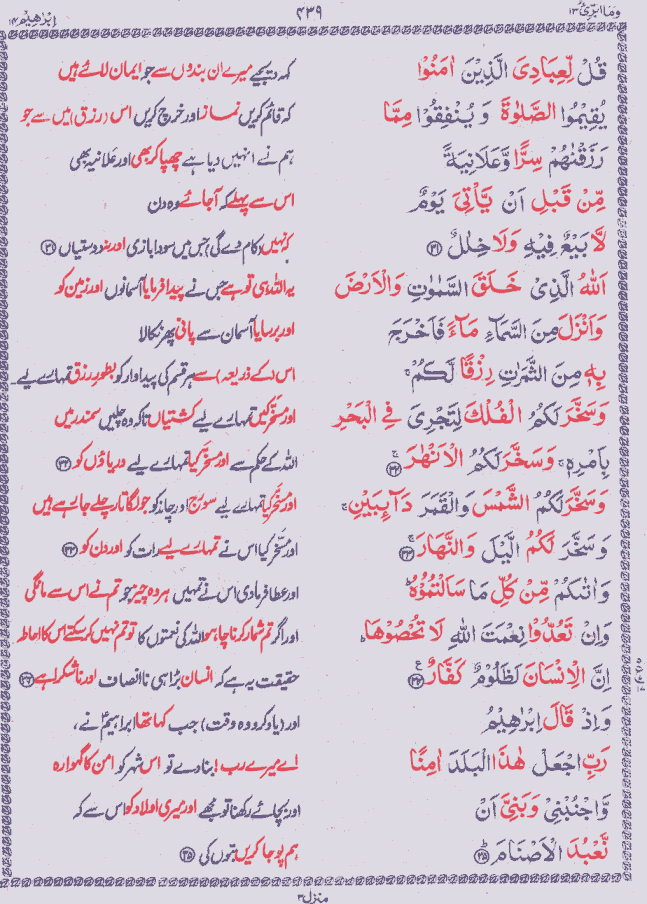 ابرٰهیم ۱۴
۴۳۹
وما ابرئ ۱۳
قُلْ لِّعِبَادِیَ الَّذِیْنَ اٰمَنُوْا
کہہ دیجیے میرے ان بندوں سے جو ایمان لائے ہیں
یُقِیْمُوا الصَّلٰوةَ وَ یُنْفِقُوْا مِمَّا
کہ قائم کریں نماز اور خرچ کریں اس (رزق) میں سے جو
رَزَقْنٰهُمْ سِرًّا وَّعَلَانِیَةً
ہم نے انہیں دیا ہے چھپا کر بھی اور علانیہ بھی
مِّنْ قَبْلِ اَنْ یَّاْتِیَ یَوْمٌ
اس سے پہلے کہ آجائے وہ دن
لَّا بَیْعٌ فِیْهِ وَلَا خِلٰلٌ ﴿۳۱﴾
کہ نہیں (کام دے گی) جس میں سودا بازی اور نہ دوستیاں ﴿۳۱﴾
اَللّٰهُ الَّذِیْ خَلَقَ السَّمٰوٰتِ وَالْاَرْضَ
یہ اللہ ہی تو ہے جس نے پیدا فرمایا آسمانوں اور زمین کو
وَاَنْزَلَ مِنَ السَّمَآءِ مَآءً فَاَخْرَجَ
اور برسایا آسمان سے پانی پھر نکالا
بِهٖ مِنَ الثَّمَرٰتِ رِزْقًا لَّكُمْ ۚ
اس (کے ذریعہ) سے ہر قسم کی پیداوار کو بطور رزق تمہارے لیے۔
وَسَخَّرَ لَكُمُ الْفُلْكَ لِتَجْرِیَ فِی الْبَحْرِ
اور مسخر کیں تمہارے لیے کشتیاں تاکہ وہ چلیں سمندر میں
بِاَمْرِهٖ ۚ وَسَخَّرَ لَكُمُ الْاَنْهٰرَ ۚ﴿۳۲﴾
اللہ کے حکم سے اور مسخر کیا تمہارے لیے دریاؤں کو ﴿۳۲﴾
وَسَخَّرَ لَكُمُ الشَّمْسَ وَالْقَمَرَ دَآىِٕبَیْنِ ۚ
اور مسخر کیا تمہارے لیے سورج اور چاند کو جو لگاتار چلے جا رہے ہیں
وَسَخَّرَ لَكُمُ الَّیْلَ وَالنَّهَارَ ۚ﴿۳۳﴾
اور مسخر کیا اس نے تمہارے لیے رات کو اور دن کو ﴿۳۳﴾
وَاٰتٰىكُمْ مِّنْ كُلِّ مَا سَاَلْتُمُوْهُ ؕ
اور عطا فرما دی اس نے تمہیں ہر وہ چیز جو تم نے اس سے مانگی
وَاِنْ تَعُدُّوْا نِعْمَتَ اللّٰهِ لَا تُحْصُوْهَا ؕ
اور اگر تم شمار کرنا چاہو اللہ کی نعمتوں کا تو تم نہیں کر سکتے اس کا احاطہ
اِنَّ الْاِنْسَانَ لَظَلُوْمٌ كَفَّارٌ ﴿۳۴﴾
حقیقت یہ ہے کہ انسان بڑا ہی نا انصاف اور ناشکرا ہے ﴿۳۴﴾
وَاِذْ قَالَ اِبْرٰهِیْمُ
اور (یاد کرو وہ وقت) جب کہا تھا ابراہیمؑ نے،
رَبِّ اجْعَلْ هٰذَا الْبَلَدَ اٰمِنًا
اے میرے رب! بنا دے تو اس شہر کو امن کا گہوارہ
وَّاجْنُبْنِیْ وَبَنِیَّ اَنْ
اور بچائے رکھنا تو مجھے اور میری اولاد کو اس سے کہ
نَّعْبُدَ الْاَصْنَامَ ؕ﴿۳۵﴾
ہم پوجا کریں بتوں کی ﴿۳۵﴾
منزل ۳